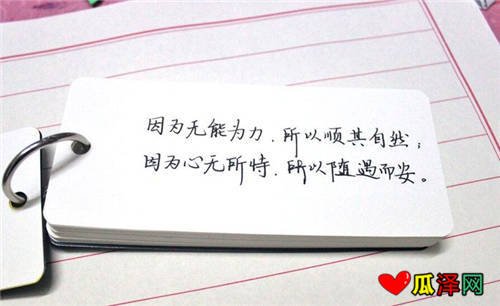 因为无能为力，所以顺其自然；
因为心无所恃，所以随遇而安。
瓜泽网